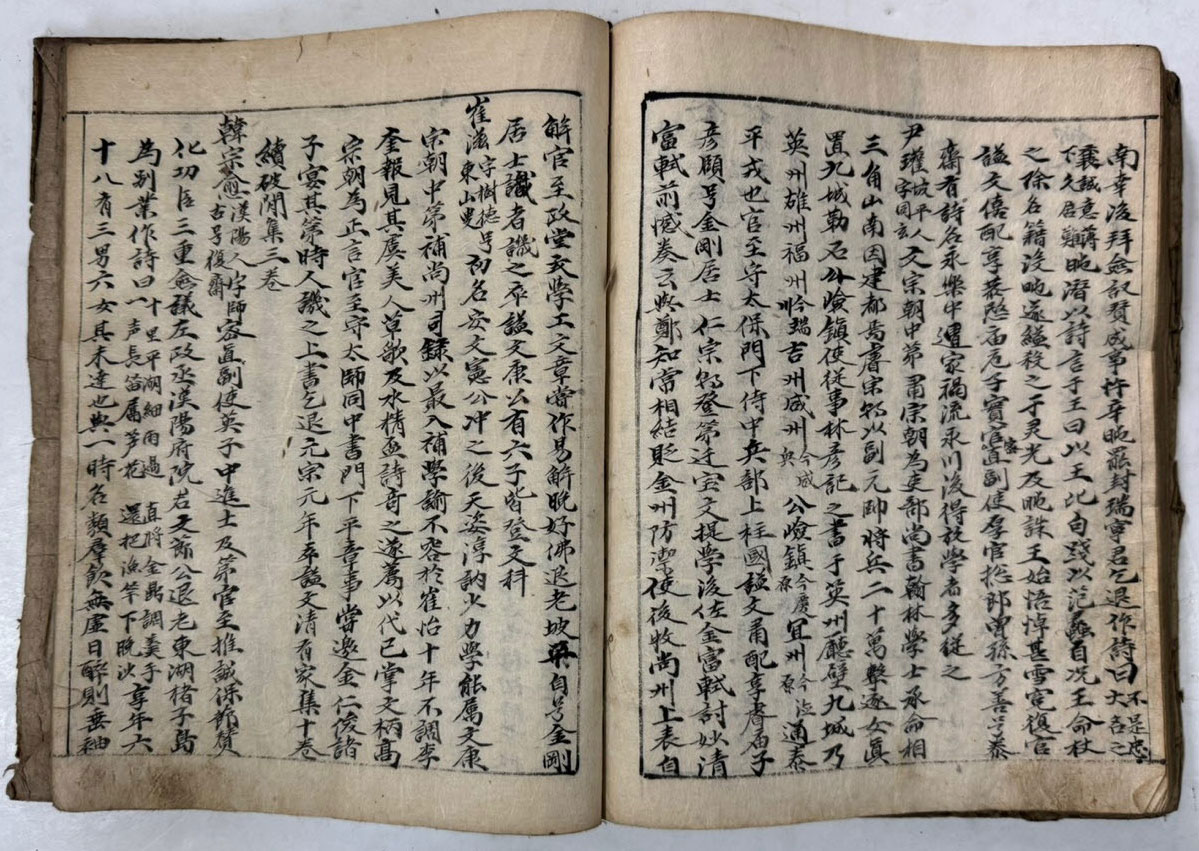 南幸後拜僉議贊成事忤辛旽罷封瑞寧君乞退作詩曰
不是忠衰誠意薄
大名之下久居難
旽潛以詩言于王曰以王比句踐以范蠡自況王命杖
之除名籍沒旽遂縊殺之于灵光及旽誅王始悟悼甚雪寃復官
謚文僖配享恭愍庙庭子寶官直副使
客
孫官捴郎曾孫方善号泰
齋有詩名永樂中遭家禍流永川後得放學者多從之
尹瓘
坡平人
字同玄
文宗朝中第肅宗朝為吏部尚書翰林學士承命相
三角山南因建都焉睿宗朝以副元帥將兵二十萬擊逐女眞
置九城勒石公嶮鎮使從事林彥記之書于英州廳壁九城乃
英州雄州福州
吉州咸州
今咸
公嶮鎮
宜州
通泰
平戎也官至守太保門下侍中兵部上柱國謚文肅配享睿庙子
彥頤号金剛居士仁宗朝登第迁宝文提學後佐金富軾討妙清
富軾前憾奏云與鄭知常相結貶金州防禦使後牧尚州上表自
解官至政堂文學工文章嘗作易解晚好佛退老坡平自号金剛
居士識者譏之卒謚文康公有六子皆登文科
崔滋
字樹德号
東山叟
初名安文憲公冲之後天姿淳訥少力學能属文康
宗朝中第補尚州司錄以最入補學諭不容於崔怡十年不調李
奎報見其虞美人草歌及水精盃詩奇之遂薦以代己掌文柄高
宗朝為正言官至守太師同中書門下平章事嘗邀金仁俊諸
子宴其第時人譏之上書乞退元宗元年卒謚文清有家集十卷
續破閑集三卷
韓宗愈
漢陽人字師
古号復齋
客直副使英子中進士及第官至推誠保節贊
化功臣三重僉議左政丞漢陽府院君文節公退老東湖楮子島
為別業作詩曰
十里平湖細雨過
一声長笛鬲芦花
直將金鼎調羹手
還把漁竿下晚沙
享年六
十八有三男六女其未達也與一時名類群飮無虛日醉則垂袖